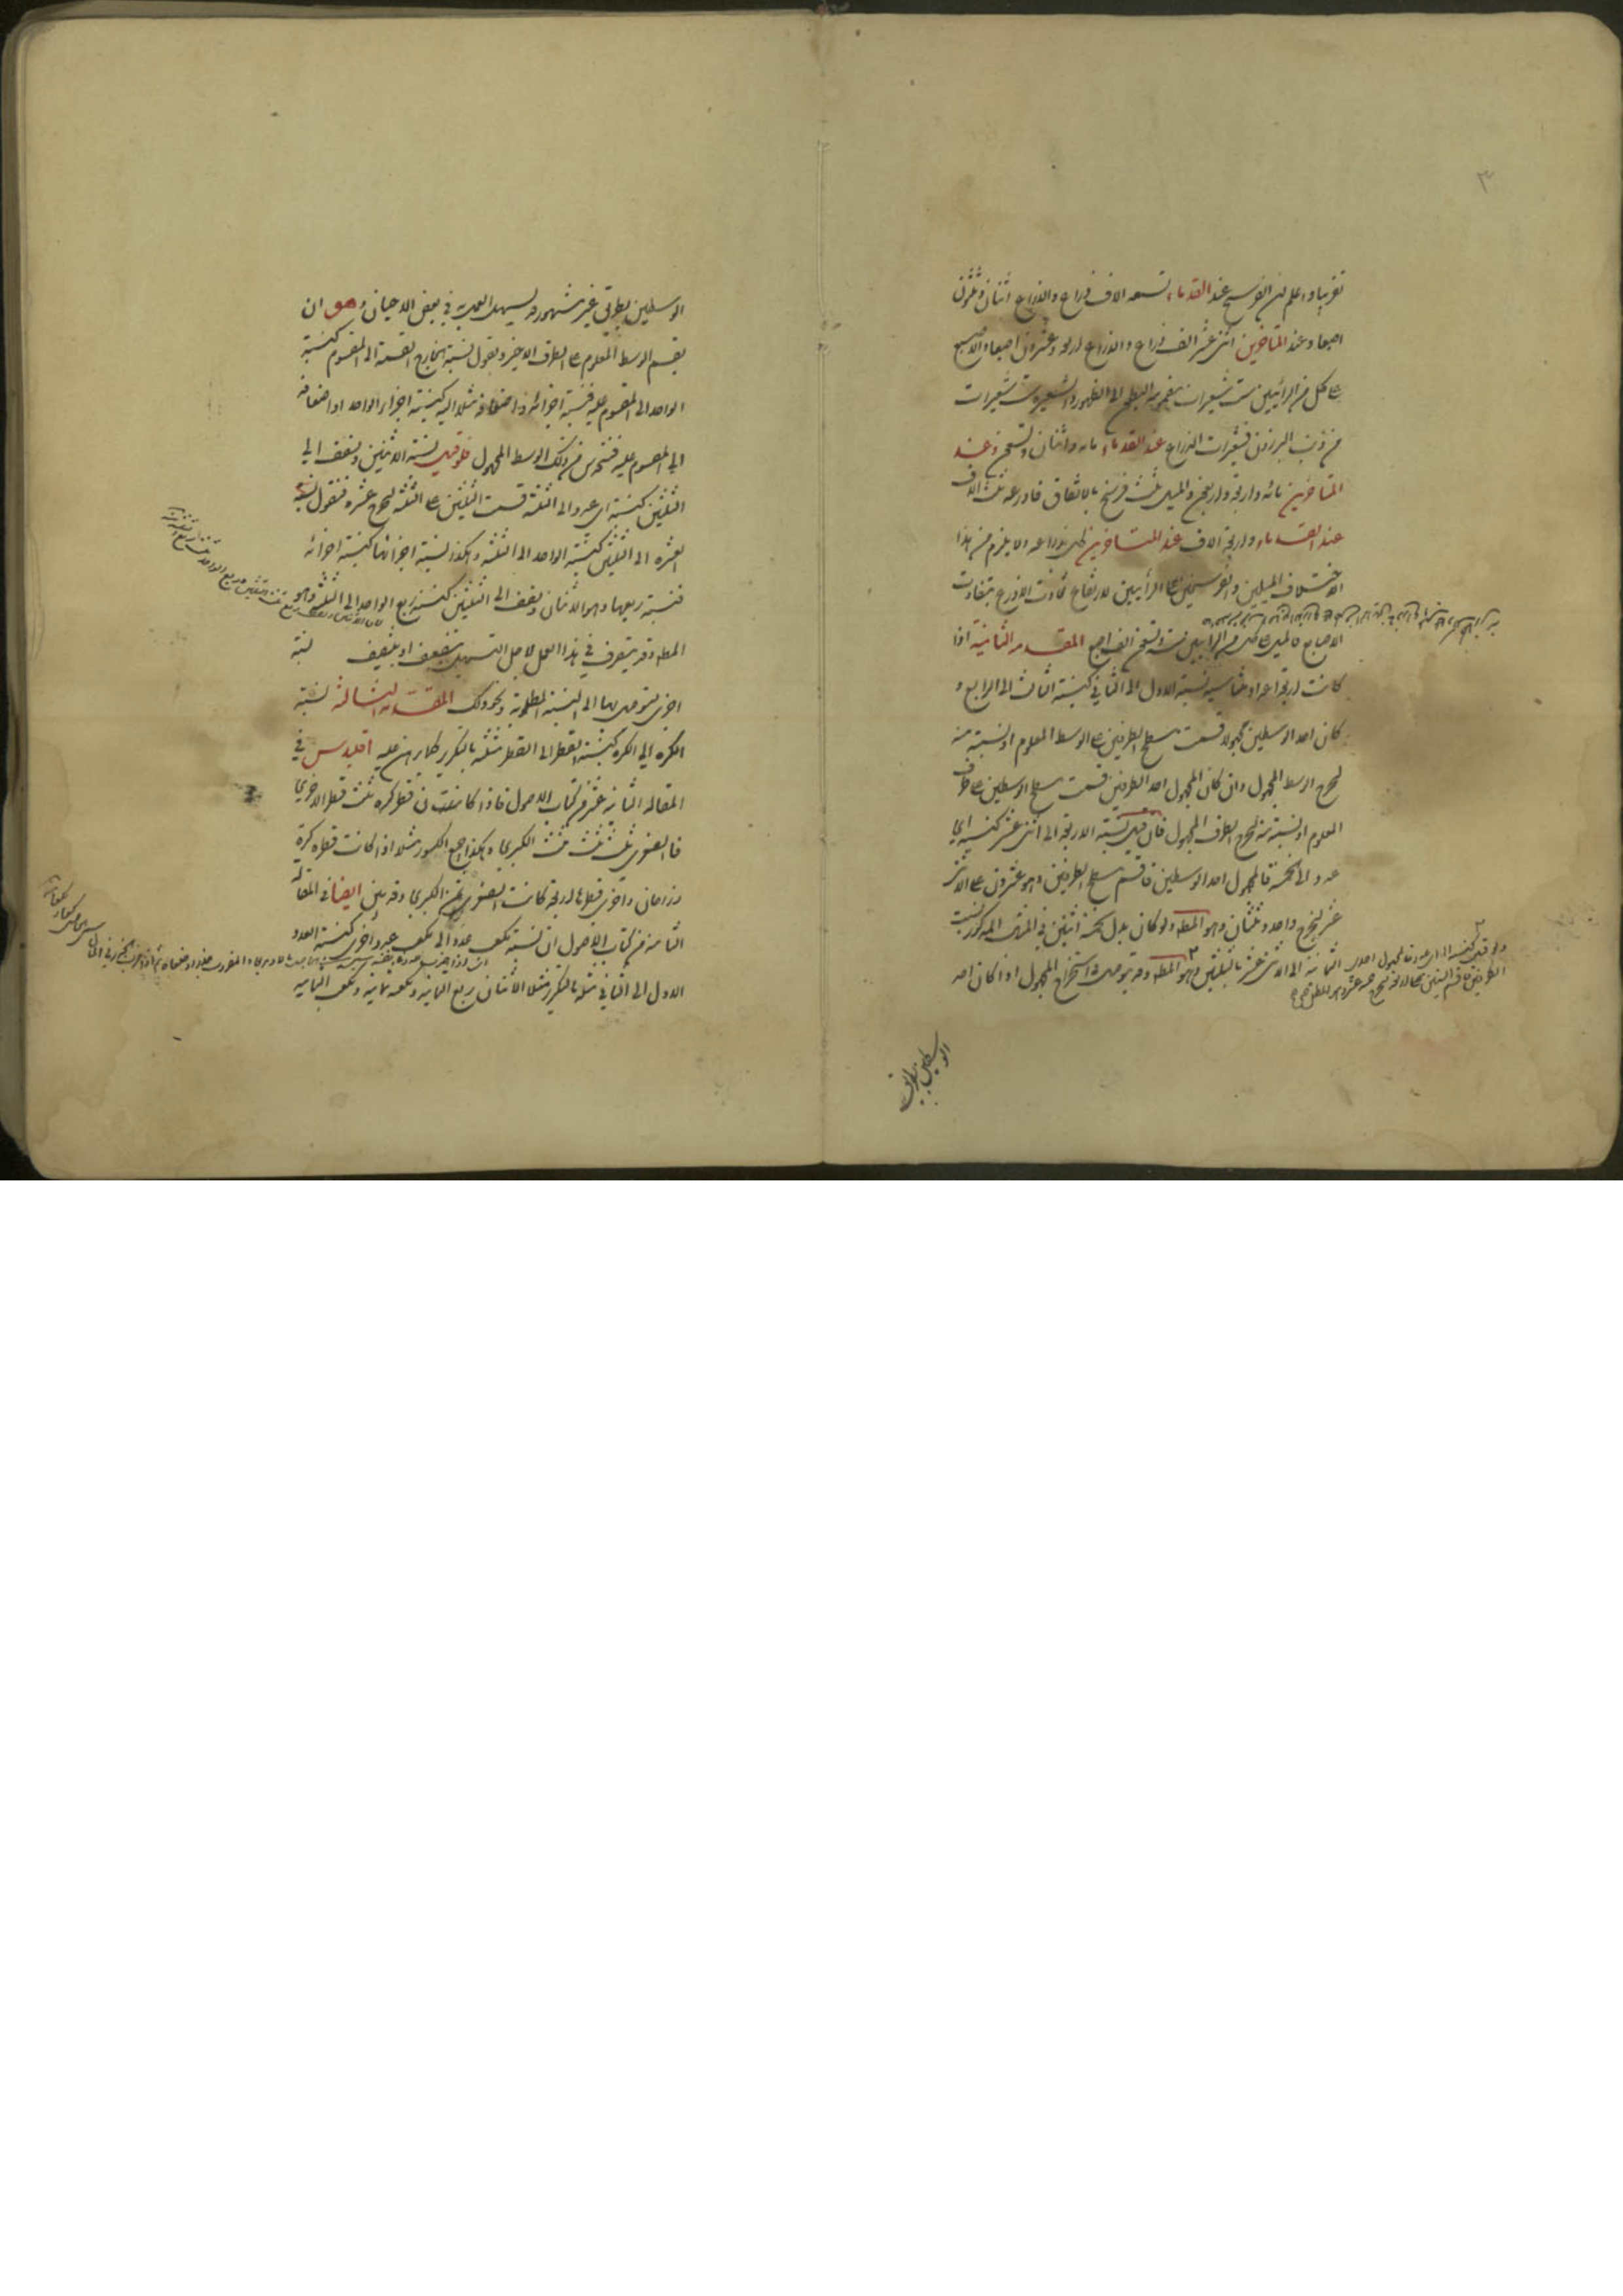 ٣
تقريبا واعلم ان الفرسخ عند القدماء تسعة الاف ذراع والذراع اثنان وثلثون
اصبعا وعند المتاخرين اثنى عشر الف ذراع والذراع اربعة وعشرون اصبعا والاصبع
على كل من الرأيين ست شعيرات مضمومة البطون الى الظهور والشعيرة ست شعيرات
من ذنب البرذون فشعيرات الذراع عند القدماء مائة واثنان وتسعون وعند
المتاخرين مائة واربعة واربعون والميل ثلث فرسخ بالاتفاق فاذرعه ثلثة الاف
عند القدماء واربعة الاف عند المتاخرين كل بذراعه ولا يلزم من هذا
الاختلاف الميلين والفرسخين على الرأيين لارتفاع تفاوت الاذرع بتفاوت
الاصابع فالميل على كل من الرأيين ستة وتسعون الف اصبع المقدمة الثانية اذا
كانت اربعة اعداد متناسبة نسبة الاول الى الثاني كنسبة الثالث الى الرابع و
كان احد الوسطين مجهولا قسمت مسطح الطرفين على الوسط المعلوم او نسبته منه
ليخرج الوسط المجهول وان كان المجهول احد الطرفين قسمت مسطح الوسطين على الطرف
المعلوم او نسبته منه ليخرج الطرف المجهول فان قيل نسبة الاربعة الى اثنى عشر كنسبة اى
عدد الى الخمسة فالمجهول احد الوسطين فاقسم مسطح الطرفين وهو عشرون على الاثنى
عشر ليخرج واحد وثلثان وهو المط ولو كان بدل الخمسة اثنين في المثال المذكور نسبت
الثمانية الى الاثنى عشر بالثلثين وهو المط وقد يتوصل في استخراج المجهول اذا كان احد
الطرفين فاقسم الستين على الاربعة ليخرج خمسة عشر وهو المطلوب
الوسطين بطريق
الوسطين بطريق غير مشهور قد يسهل العمل به في بعض الاحيان وهو ان
يقسم الوسط المعلوم على الطرف الاخير ونقول نسبة الخارج القسمة الى المقسوم كنسبة
الواحد الى المقسوم عليه فنسبة اجزائه واضعافه مثلا اليه كنسبة اجزاء الواحد او اضعافه
الى المقسوم عليه فتحدس من ذلك الوسط المجهول فلو قيل نسبة الاثنين ونصف الى
الثلثين كنسبة اى عدد الى الثلثة قسمت الثلثين على الثلثة ليخرج عشرة فنقول نسبة
العشرة الى الثلثين كنسبة الواحد الى الثلثة وهكذا نسبة اجزائها كنسبة اجزائه
فنسبة ربعها وهو الاثنان ونصف الى الثلثين كنسبة ربع الواحد الى الثلثة وهو
المط وقد يتصرف في هذا العمل لاجل التسهيل بتضعيف او بتنصيف نسبة
اخرى يتوصل بها الى النسبة المطلوبة ونحو ذلك المقدمة الثالثة نسبة
الكرة الى الكرة كنسبة القطر الى القطر مثلثة بالتكرير كما برهن عليه اقليدس في
المقالة الثانية عشر من كتاب الاصول فاذا كانت قطر كرة ثلث قطر الاخرى
فالصغرى ثلث ثلث ثلث الكبرى وهكذا جميع الكسور مثلا اذا كانت قطر كرة
ذراعان واخرى قطرها اربعة كانت الصغرى ثمن الكبرى وقد بين ايضا في المقالة
الثامنة من كتاب الاصول ان نسبة مكعب عدد الى مكعب عدد اخر كنسبة العدد
الاول الى الثاني مثلثة بالتكرير مثلا الاثنان ربع الثمانية ومكعبه ثمانية ومكعب الثمانية